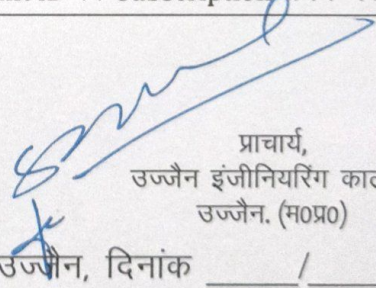 प्राचार्य,
उज्जैन इंजीनियरिंग काल
उज्जैन. (म०प्र०)
उज्जैन, दिनांक ______/______